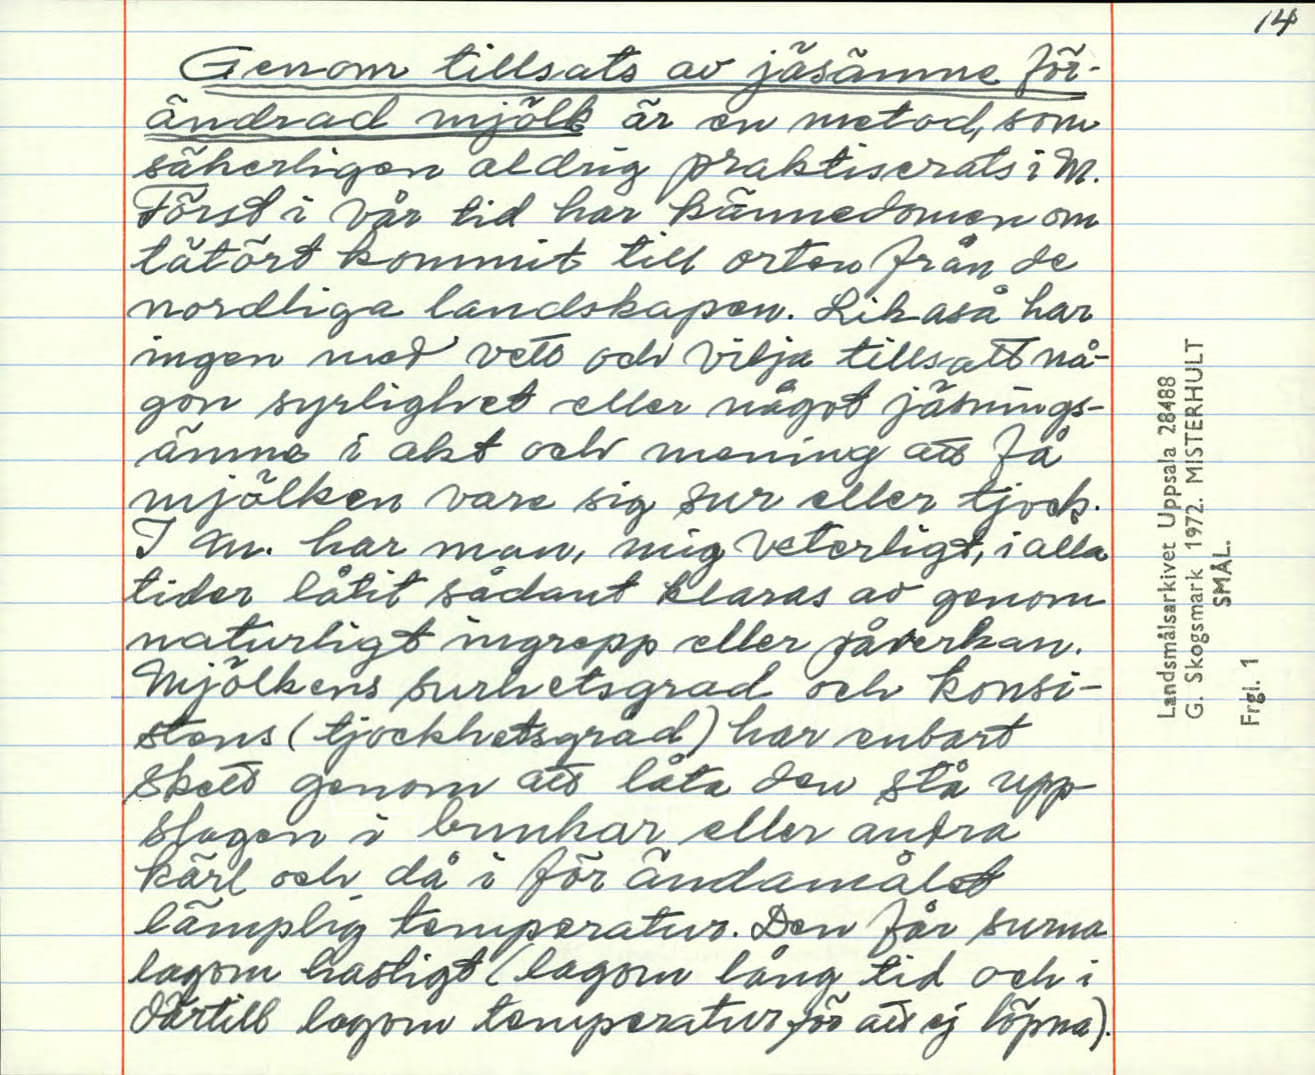 14
Genom tillsats av jäsämne för-
ändrad mjölk är en metod, som
säkerligen aldrig praktiserats i M.
Först i vår tid har kännedomen om
tätört kommit till orten från de
nordliga landskapen. Likaså har
ingen med vett och vilja tillsatt nå-
gon syrlighet eller något jäsnings-
ämne i akt och mening att få
mjölken vare sig sur eller tjock.
I M. har man, mig veterligt, i alla
tider låtit sådant klaras av genom
naturligt ingrepp eller påverkan.
Mjölkens surhetsgrad och konsi-
stens (tjockhetsgrad) har enbart
skett genom att låta den stå upp-
slagen i bunkar eller andra
kärl och då i för ändamålet
lämplig temperatur. Den får surna
lagom hastigt (lagom lång tid och i
därtill lagom temperatur för att ej löpna).
Landsmålsarkivet Uppsala 28488
G. Skogsmark 1972. MISTERHULT
SMÅL.
Frgl. 1